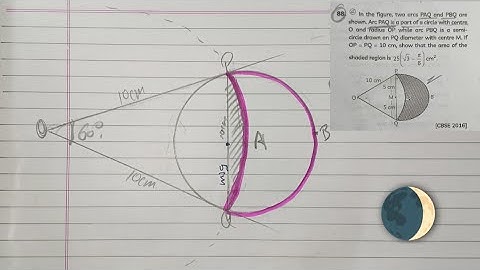 88.
In the figure, two arcs PAQ and PBQ are
shown. Arc PAQ is a part of a circle with centre
O and radius OP while arc PBQ is a semi-
circle drawn on PQ diameter with centre M. If
OP = PQ = 10 cm, show that the area of the
shaded region is 25(√3 − π/6) cm².
10 cm
P
5 cm
O
M
A
B
5 cm
Q
[CBSE 2016]
P
10cm
O
60°
A
B
5cm
10cm
Q